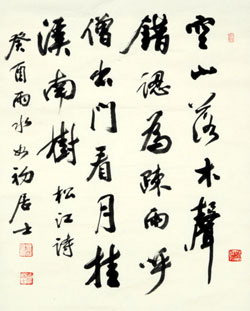 空山落木聲
錯認為疎雨呼
僧出門看月挂
溪南樹 松江詩
癸酉雨水如初居士